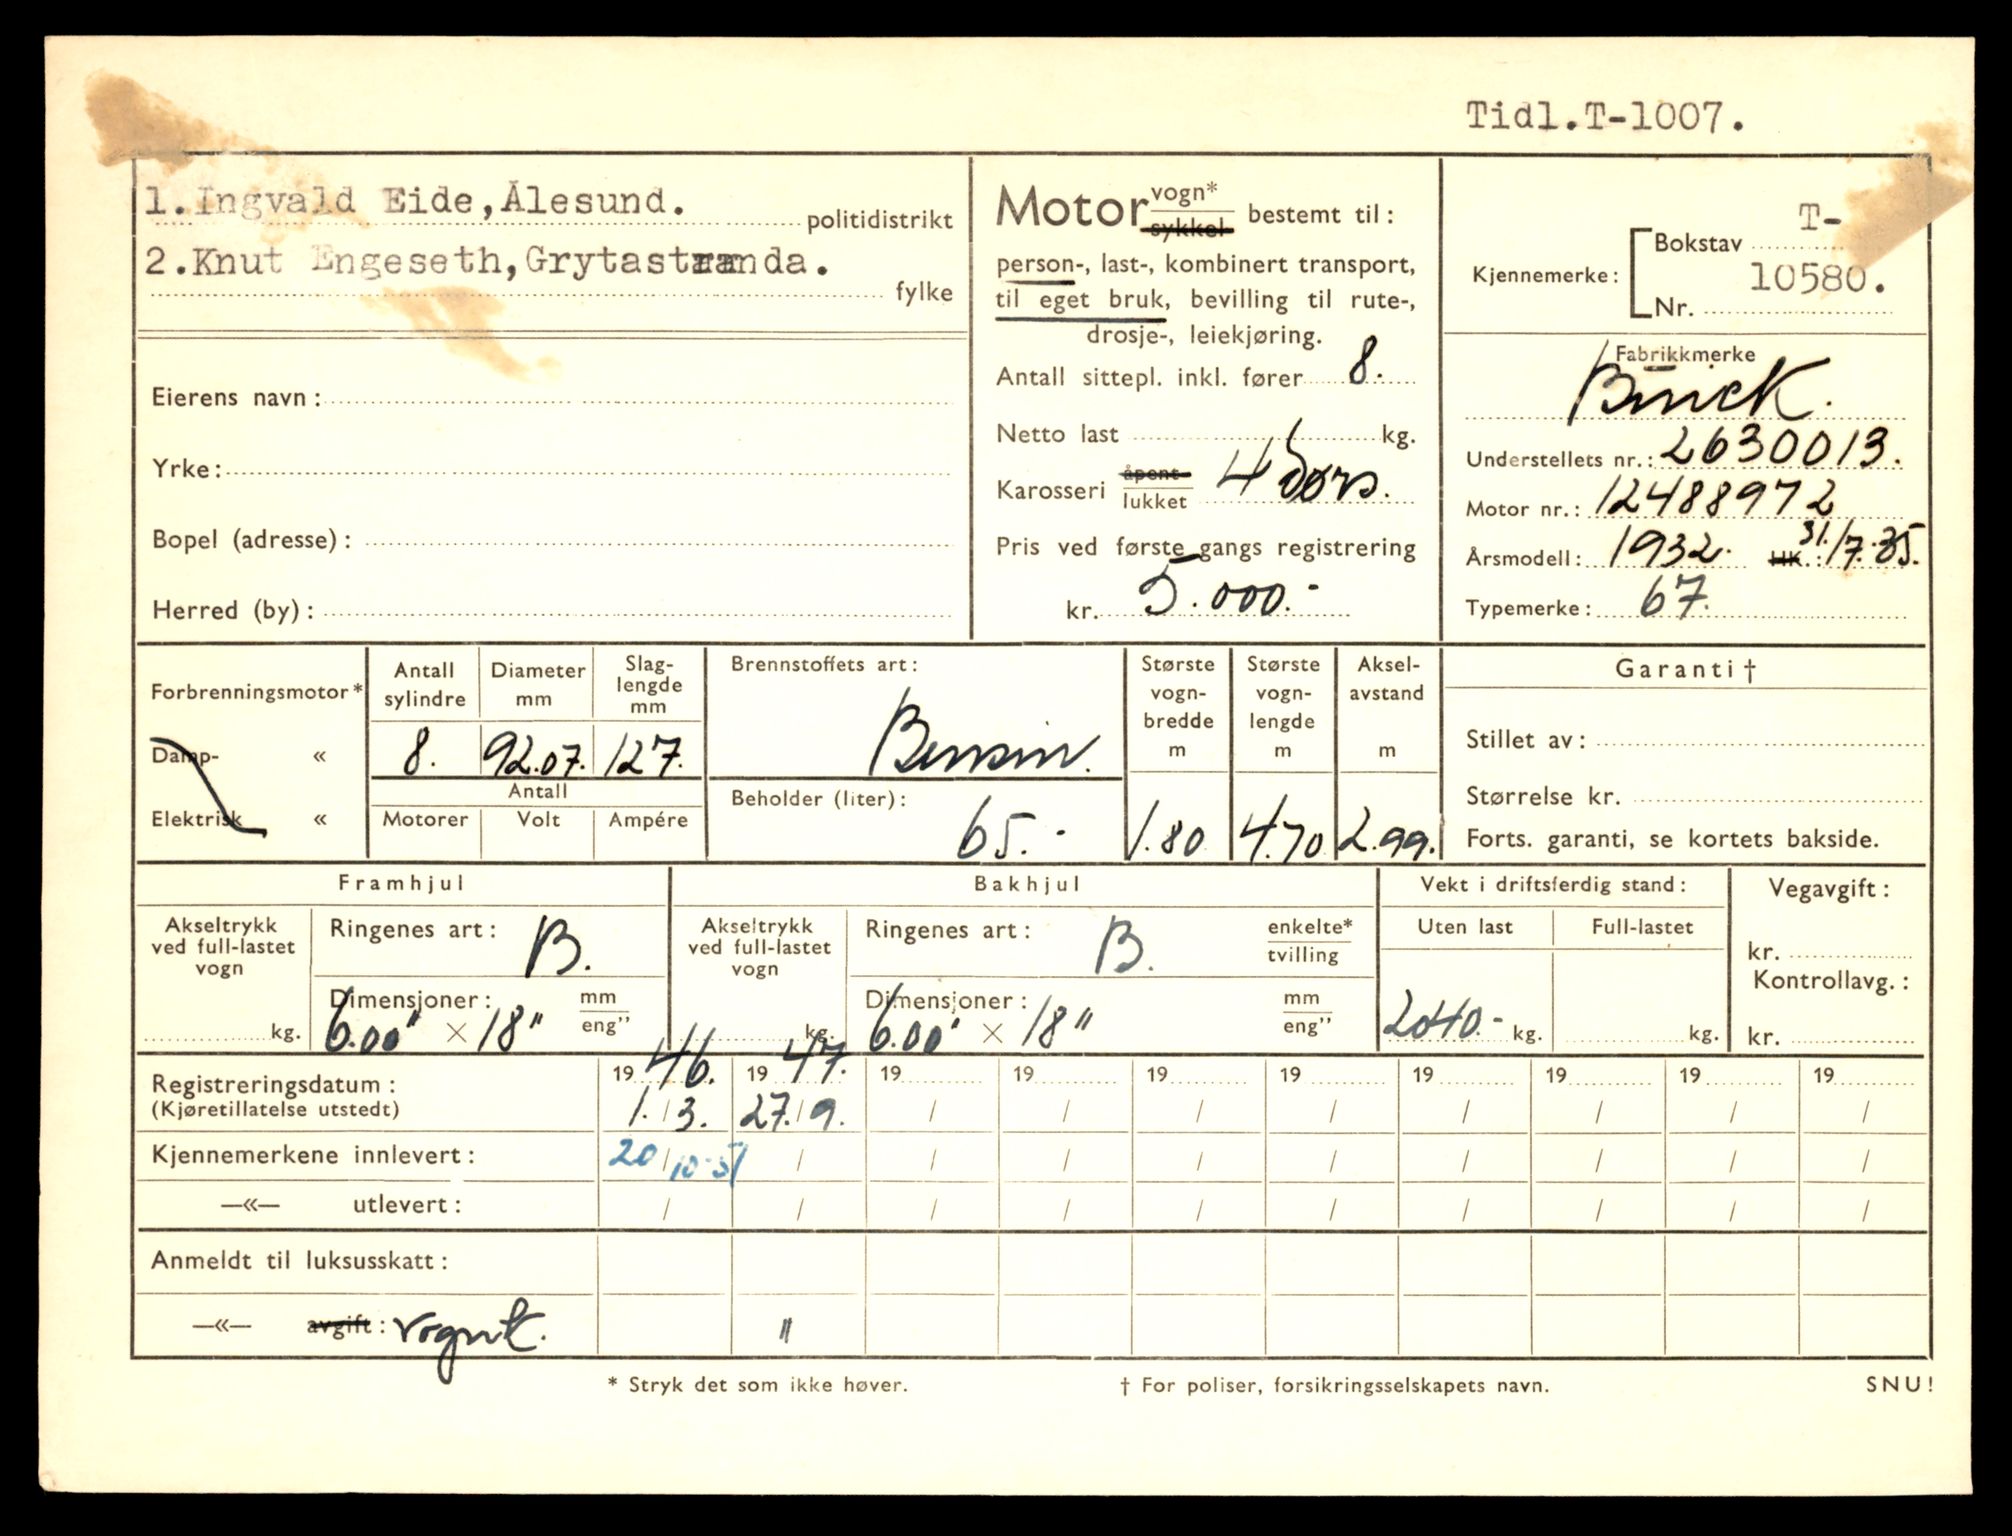 Tidl.T-1007.
1.Ingvald Eide,Ålesund. politidistrikt
2.Knut Engeseth,Grytastranda. fylke
Eierens navn:
Yrke:
Bopel (adresse):
Herred (by):
Motor vogn* / sykkel bestemt til:
person-, last-, kombinert transport,
til eget bruk, bevilling til rute-,
drosje-, leiekjøring.
Antall sittepl. inkl. fører 8.
Netto last kg.
Karosseri åpent / lukket 4 dørs.
Pris ved første gangs registrering
kr. 5.000.-
Kjennemerke: Bokstav T-
Nr. 10580.
Fabrikkmerke
Buick.
Understellets nr.: 2630013.
Motor nr.: 12488972
Årsmodell: 1932. HK.: 31./7.35.
Typemerke: 67.
Forbrenningsmotor*
Damp- «
Elektrisk «
Antall sylindre 8.
Diameter mm 92.07.
Slag-lengde mm 127.
Antall
Motorer Volt Ampére
Brennstoffets art:
Bensin.
Beholder (liter):
65.-
Største vogn-bredde m 1.80
Største vogn-lengde m 4.70
Aksel-avstand m 2.99.
Garanti †
Stillet av:
Størrelse kr.
Forts. garanti, se kortets bakside.
Framhjul
Akseltrykk ved full-lastet vogn kg.
Ringenes art: B.
Dimensjoner: mm / eng”
6.00" × 18"
Bakhjul
Akseltrykk ved full-lastet vogn kg.
Ringenes art: B. enkelte* / tvilling
Dimensjoner: mm / eng”
6.00" × 18"
Vekt i driftsferdig stand:
Uten last Full-lastet
2040.- kg. kg.
Vegavgift:
kr.
Kontrollavg.:
kr.
Registreringsdatum: 19 46. 19 47. 19 19 19 19 19 19 19 19
(Kjøretillatelse utstedt) 1./3. 27./9. / / / / / / / /
Kjennemerkene innlevert: 20/10-51 / / / / / / / / /
—«— utlevert: / / / / / / / / / /
Anmeldt til luksusskatt:
—«— avgift: vognk. "
* Stryk det som ikke høver. † For poliser, forsikringsselskapets navn. SNU!